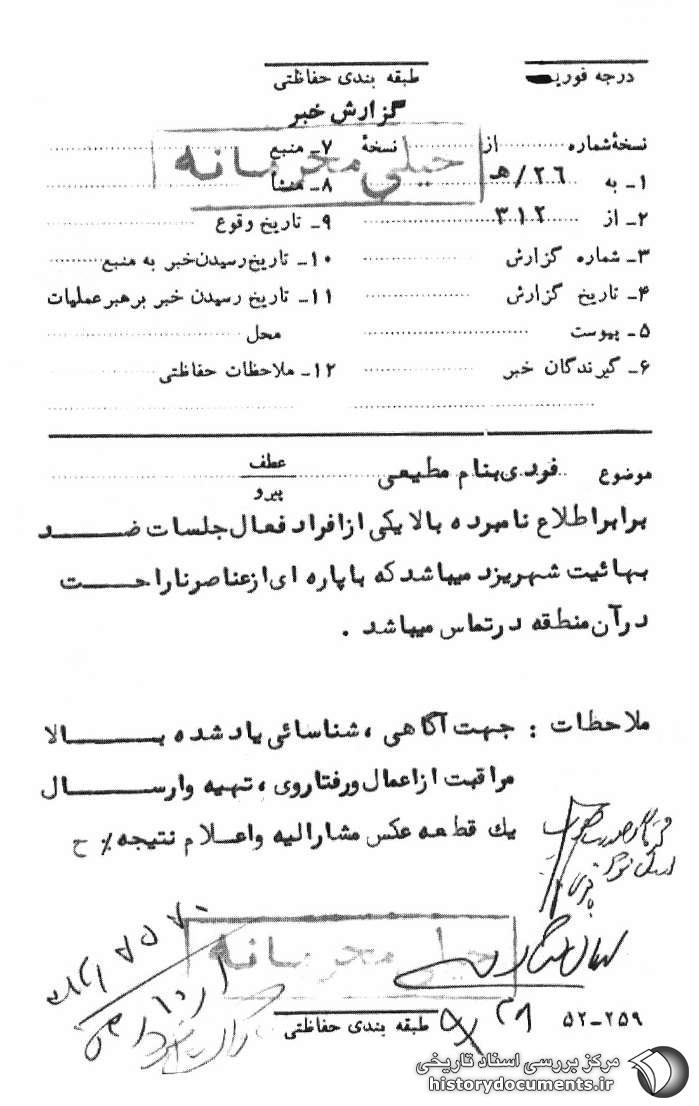 درجه فوریت
طبقه بندی حفاظتی
گزارش خبر
خیلی محرمانه
نسخهٔ شماره .......... از .......... نسخهٔ
۱ـ به ۲۶/هـ
۲ـ از ۳۱۲
۳ـ شماره گزارش
۴ـ تاریخ گزارش
۵ـ پیوست
۶ـ گیرندگان خبر
۷ـ منبع
۸ـ منشأ
۹ـ تاریخ وقوع
۱۰ـ تاریخ رسیدن خبر به منبع
۱۱ـ تاریخ رسیدن خبر برهبر عملیات
محل
۱۲ـ ملاحظات حفاظتی
موضوع فردی بنام مطیعی عطف
پیرو
برابر اطلاع نامبرده بالا یکی از افراد فعال جلسات ضد
بهائیت شهر یزد میباشد که با پاره ای از عناصر ناراحت
در آن منطقه در تماس میباشد .
ملاحظات : جهت آگاهی ، شناسائی یاد شده بالا
مراقبت از اعمال و رفتار وی ، تهیه و ارسال
یك قطعه عکس مشارالیه و اعلام نتیجه٪ ح
خیلی محرمانه
طبقه بندی حفاظتی
۵۲-۲۵۹
مرکز بررسی اسناد تاریخی
historydocuments.ir